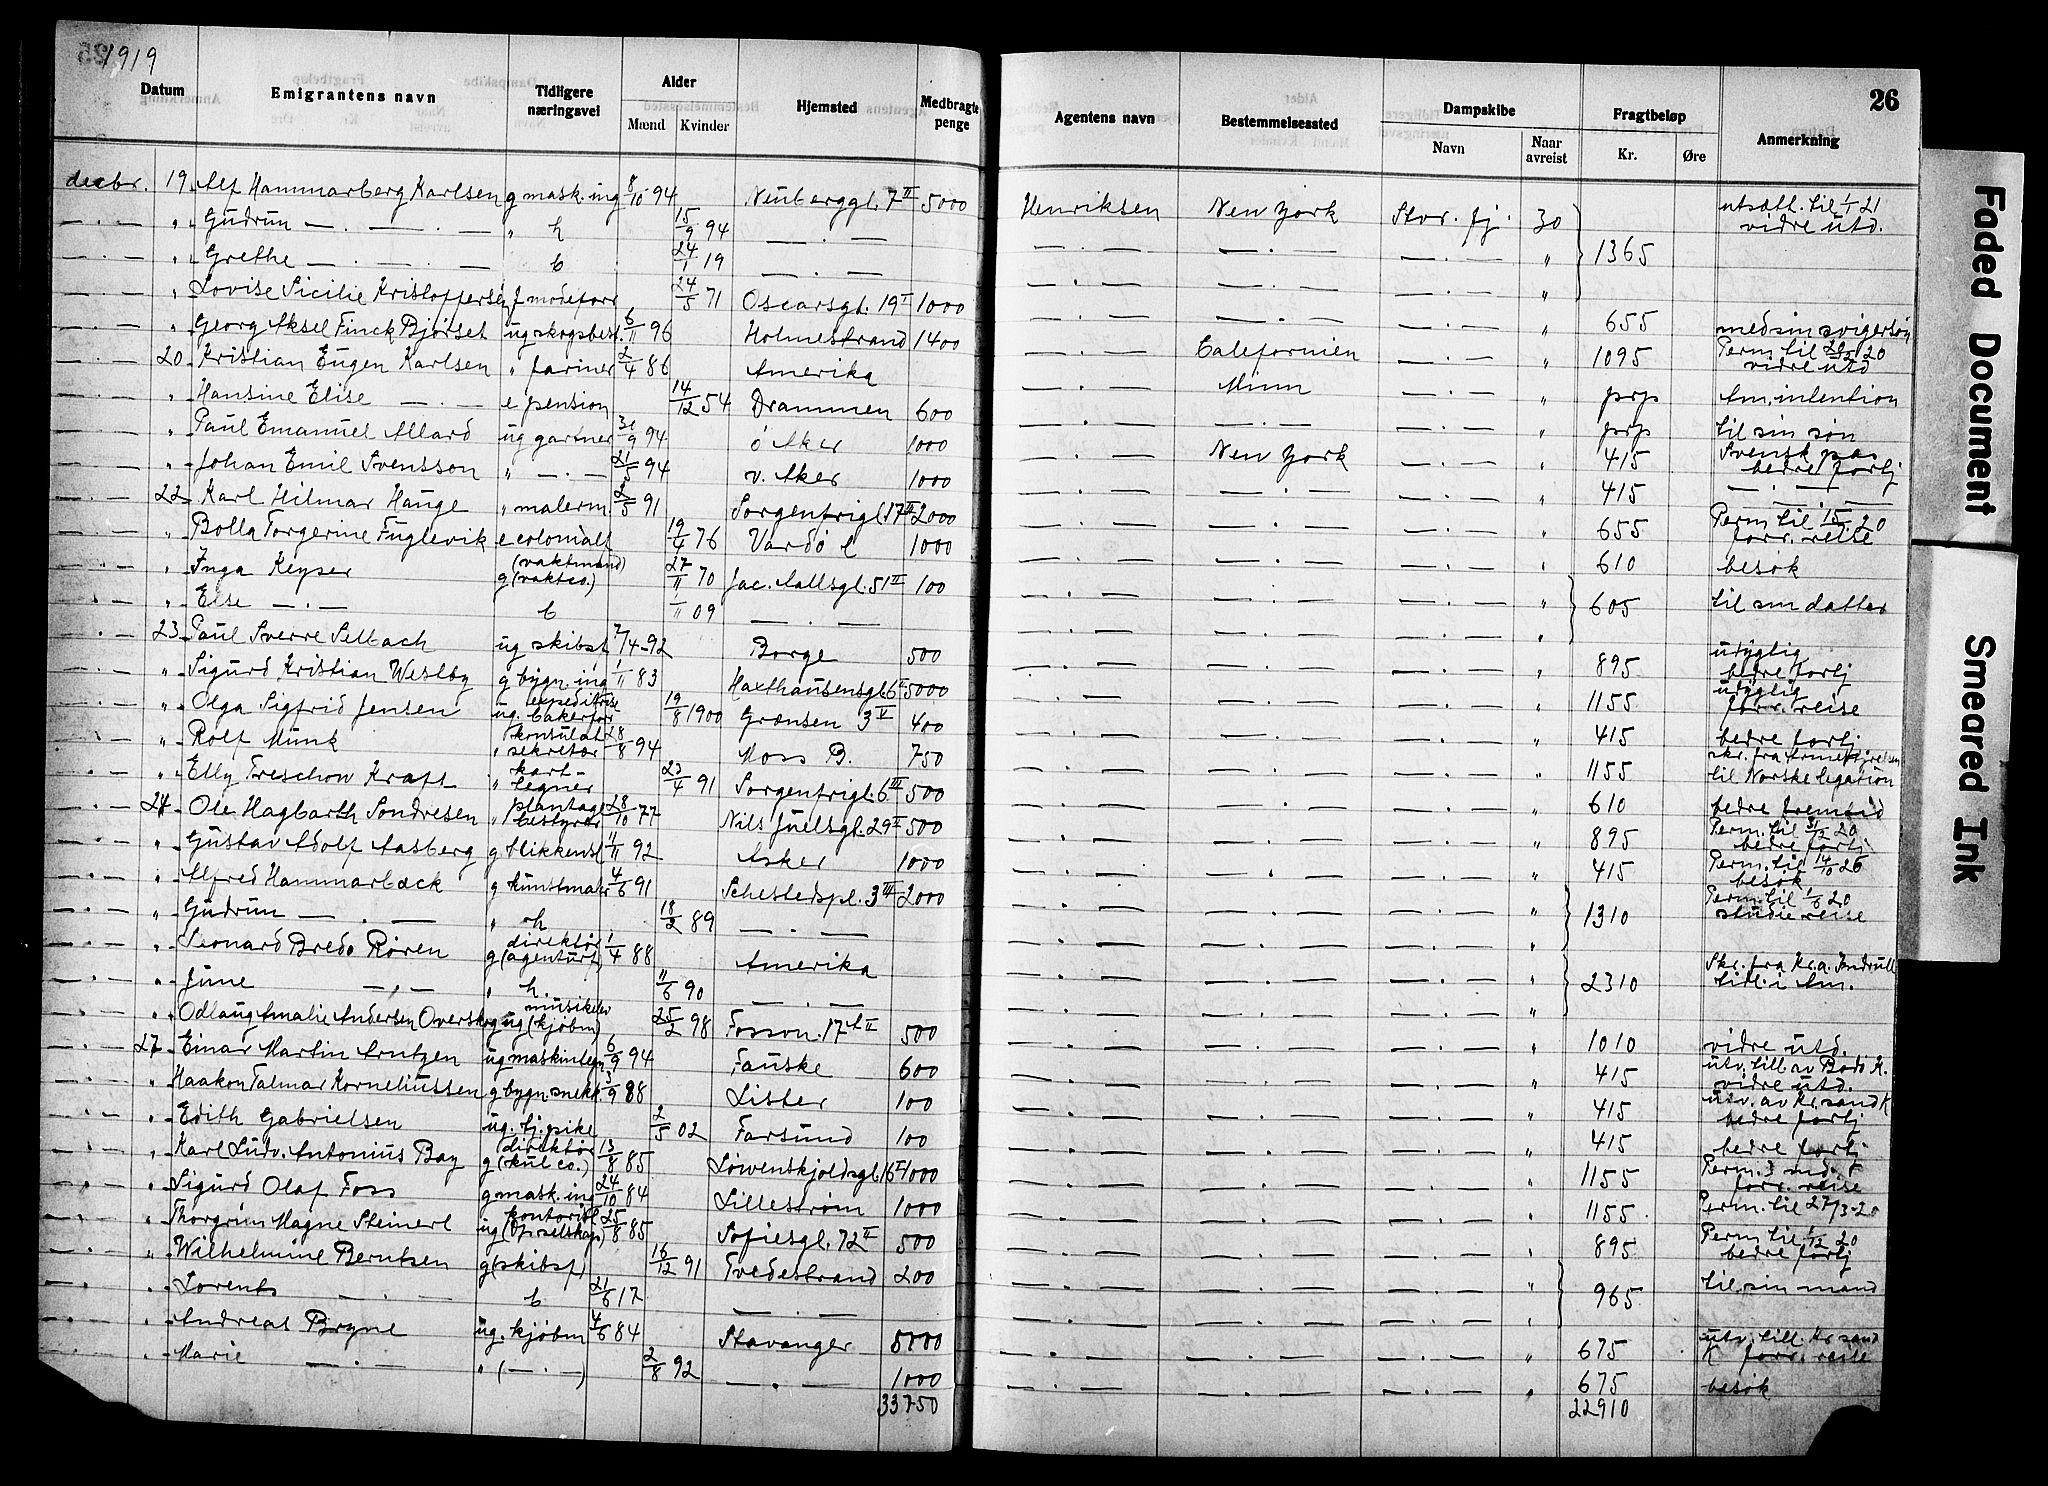 1919
26
Datum Emigrantens navn Tidligere næringsvei Alder Mænd Kvinder Hjemsted Medbragte penge Agentens navn Bestemmelsessted Dampskibe Navn Naar avreist Fragtbeløp Kr. Øre Anmerkning
decbr. 19 Alf Hammarberg Karlsen g mask. ing 8/10 94 Neuberggt. 7 II 5000 Henriksen New York Stvr. fj. 30 utsatt. til 1/1 21 vidre utd.
" Gudrun — . — " h 15/9 94 — . — — . — — . — — . — " 1365
" Grethe — . — b 24/1 19 — . — — . — — . — — . — "
" Lovise Sicilie Kristoffersen f modeforr 24/5 71 Oscarsgt. 19 I 1000 — . — — . — — . — " 655 med sin svigersøn
" Georg Aksel Finck Bjørset ug skogsbest. 6/11 96 Holmestrand 1400 — . — Californien — . — " 1095 Perm. til 20/12 20 vidre utd
20 Kristian Eugen Karlsen " farmer 2/4 86 Amerika — . — Minn — . — " prp Am. intention
" Hansine Elise — . — e pension 14/12 54 Drammen 600 — . — — . — — . — " prp til sin søn
" Paul Emanuel Allard ug gartner 30/9 94 ø Aker 1000 — . — New York — . — " 415 Svensk pas bedre fortj
" Johan Emil Svensson " — . — 21/5 94 v. Aker 1000 — . — — . — — . — " 415 — . —
22 Karl Hilmar Hauge " malerm. 2/5 91 Sorgenfrigt. 17 II 2000 — . — — . — — . — " 655 Perm. til 15/5 20 forr. reise
" Bolla Torgerine Fuglevik e colonialt 19/4 76 Vardø l 1000 — . — — . — — . — " 610 besøk
" Inga Keyser (vaktmand) g (vaktco.) 27/11 70 Jac. Aallsgt. 51 II 100 — . — — . — — . — " 605 til sin datter
" Else — . — b /11 09 — . — — . — — . — — . — "
23 Paul Sverre Selbach ug skibst 2/4-92 Borge 500 — . — — . — — . — " 895 utyglig bedre fortj
" Sigurd Kristian Westby g bygn. ing 1/11 83 Haxthausensgt. 6 II 5000 — . — — . — — . — " 1155 utyglig forr. reise
" Olga Sigfrid Jensen expeditrise ug. bakerforr 19/8 1900 Grænsen 3 V 400 — . — — . — — . — " 415 bedre fortj
" Rolf Munk konsulat " sekretær 28/8 94 Moss B. 750 — . — — . — — . — " 1155 til Norske legation
" Elly Treschow Kraft kart- " tegner 23/4 91 Sorgenfrigt. 6 III 500 — . — — . — — . — " 610 bedre fremtid
24 Ole Hagbarth Sondresen plantage " bestyrer 28/10 77 Nils Juelsgt. 29 II 500 — . — — . — — . — " 895 Perm. til 31/12 20 bedre fortj.
" Gustav Adolf Aasberg g blikkensl 11/11 92 Asker 1000 — . — — . — — . — " 415 Perm. til 14/10 26 besøk
" Alfred Hammarbæck g kunstmaler 4/6 91 Schestedspl. 3 III 2000 — . — — . — — . — " 1310 Perm. til 1/6 20 studiereise
" Gudrun — . — " h 18/2 89 — . — — . — — . — — . — "
" Leonard Bredo Røren direktør g (agenturf) 1/4 88 Amerika — . — — . — — . — " 2310 Skr. fra Kr.a. tidl. i Am.
" June — . — " h. 11/6 90 — . — — . — — . — — . — "
" Odlaug Amalie Andersen Overskog musikelev ug (kjøbm) 25/2 98 Fossvn. 17 A II 500 — . — — . — — . — " 1010 vidre utd.
27 Einar Martin Arntzen ug maskinlen 6/9 94 Fauske 600 — . — — . — — . — " 415 utv. till. av Bodø K. vidre utd.
" Haakon Talmar Korneliussen g bygn. snekk. 3/9 88 Lister 100 — . — — . — — . — " 415 utv. av Kr.sand K bedre fortj
" Edith Gabrielsen ug. tj. pike 2/5 02 Farsund 100 — . — — . — — . — " 415 bedre fortj
" Karl Ludv. Antonius Bay direktør g (kul co.) 13/8 85 Løvenskjoldsgt. 16 I 1000 — . — — . — — . — " 1155 Perm. 3 md. forr. reise
" Sigurd Olaf Foss g mask. ing 24/10 84 Lillestrøm 1000 — . — — . — — . — " 1155 Perm. til 27/3-20
" Thorgrim Magne Steinert kontorist ug (Op. selskap) 25/8 85 Sofiesgt. 72 II 500 — . — — . — — . — " 895 Perm. til 1/12 20 bedre fortj
" Wilhelmine Berntsen g (skibsf) 16/12 91 Tvedestrand 200 — . — — . — — . — " 965 til sin mand
" Lorents — . — b 21/6 17 — . — — . — — . — — . — "
" Andreas Bryne ug. kjøbm 4/6 84 Stavanger 5000 — . — — . — — . — " 675 utv. till. Kr.sand K forr. reise
" Marie — . — " (— . —) 2/8 92 — . — 1000 — . — — . — — . — " 675 besøk
33750 22910
Faded Document
Smeared Ink